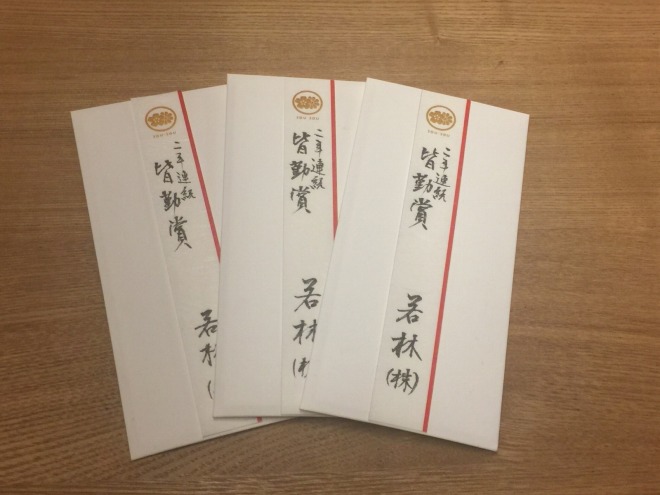 二年連続
皆勤賞
若林
(
二年連続
皆勤賞
若林
(株
二年連続
皆勤賞
若林
(株)